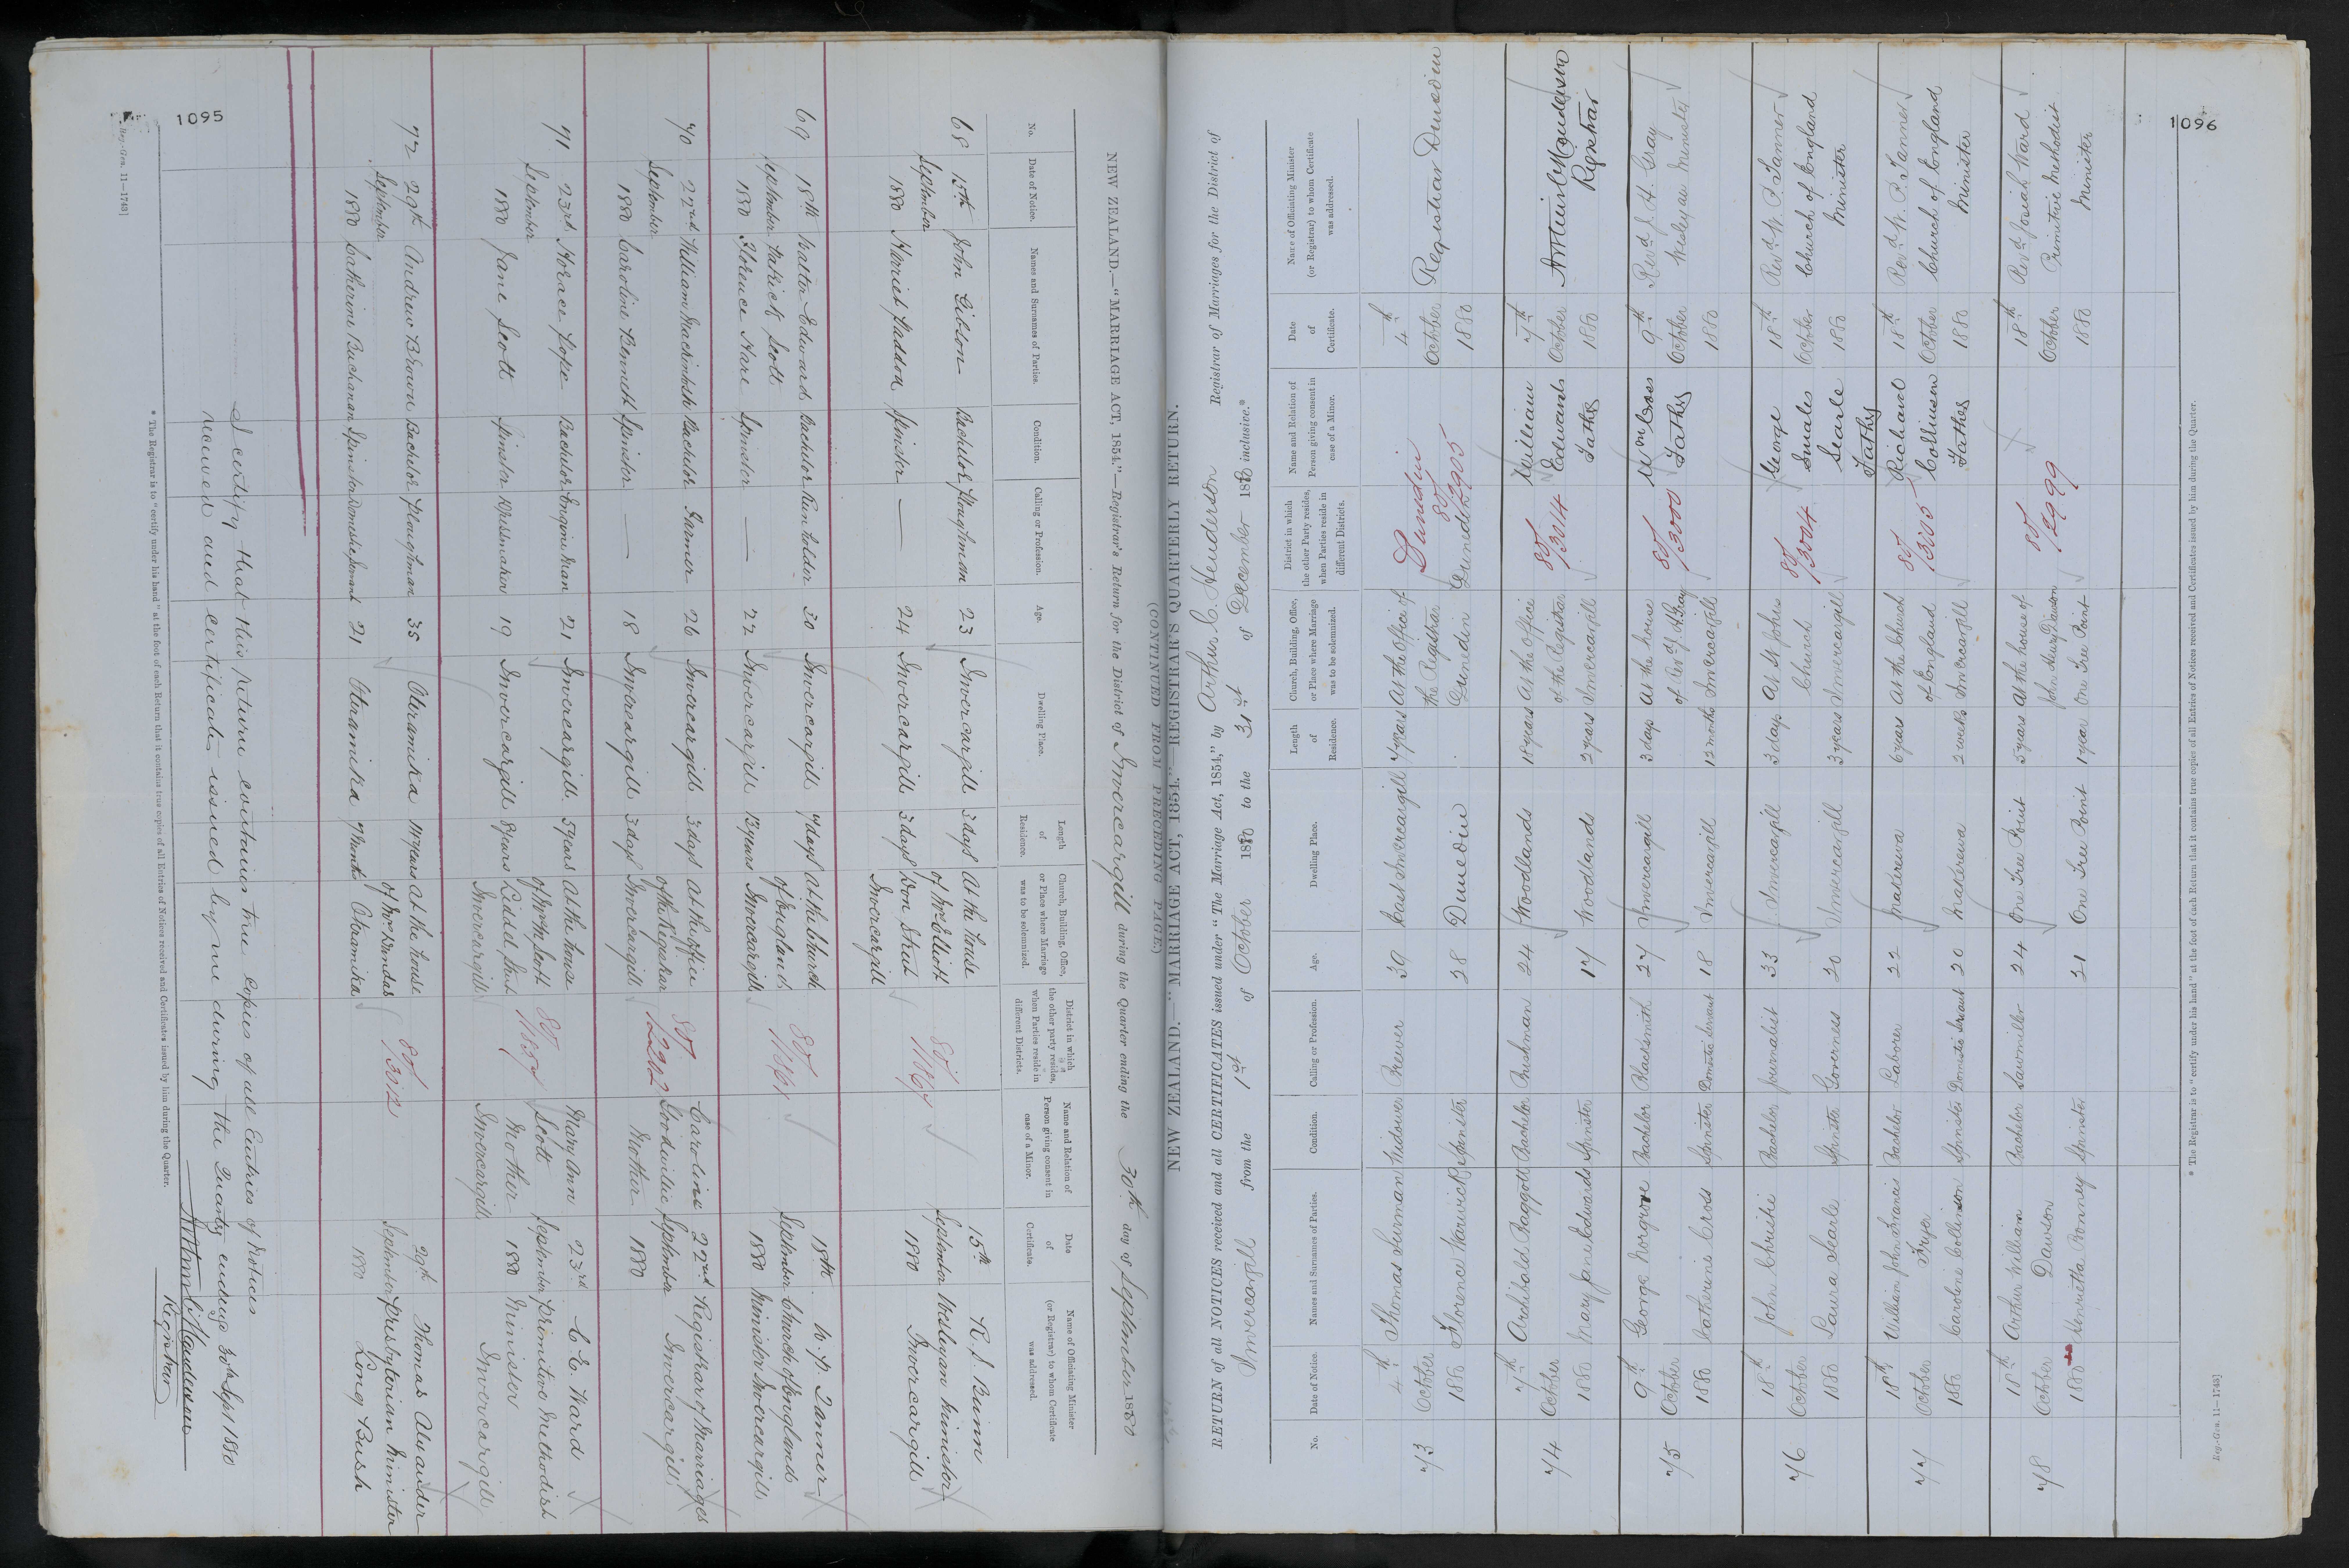 1095
NEW ZEALAND.—"MARRIAGE ACT, 1854."—Registrar's Return for the District of Invercargill during the Quarter ending the 30th day of September 1880
No.
Date of Notice.
Names and Surnames of Parties.
Condition.
Calling or Profession.
Age.
Dwelling Place.
Length of Residence.
Church, Building, Office, or Place where Marriage was to be solemnized.
District in which the other party resides, when Parties reside in different Districts.
Name and Relation of Person giving consent in case of a Minor.
Date of Certificate.
Name of Officiating Minister (or Registrar) to whom Certificate was addressed.
68 15th John Gibson Bachelor Ploughman 23 Invercargill 3 days At the house 15th R. S. Bunn
September of Mr Elliott September Wesleyan Minister
1880 Harriet Haddon Spinster — 24 Invercargill 3 days Don Street 1880 Invercargill
Invercargill
69 18th Walter Edward Bachelor Run holder 30 Invercargill 7 days At the Church 18th W. P. Tanner
September Patrick Scott of England September Church of England
1880 Florence Hare Spinster — 22 Invercargill 13 years Invercargill 1880 Minister Invercargill
70 22nd William Mackintosh Bachelor Farmer 26 Invercargill 3 days At the office 80/2292 Caroline 22nd Registrar of Marriages
September of the Registrar Goodwillie September Invercargill
1880 Caroline Bennett Spinster — 18 Invercargill 3 days Invercargill Mother 1880
71 23rd Horace Pope Bachelor Engine Man 21 Invercargill 5 years At the house Mary Ann 23rd C. E. Ward
September of Mr Wm Scott Scott September Primitive Methodist
1880 Jane Scott Spinster Dressmaker 19 Invercargill 8 years Liddel Street Mother 1880 Minister
Invercargill Invercargill Invercargill
72 29th Andrew Brown Bachelor Ploughman 35 Otramika 11 years At the house 80/3012 29th Thomas Alexander
September of Mr Dundas September Presbyterian Minister
1880 Catherine Buchanan Spinster Domestic Servant 21 Otramika 7 Months Otramika 1880 Long Bush
I certify that this return contains true Copies of all Entries of Notices
received and Certificates issued by me during the Quarter ending 30th Sept 1880
Registrar
* The Registrar is to "certify under his hand" at the foot of each Return that it contains true copies of all Entries of Notices received and Certificates issued by him during the Quarter.
Reg.-Gen. 11—1743]
1096
(CONTINUED FROM PRECEDING PAGE)
NEW ZEALAND.—"MARRIAGE ACT, 1854."—REGISTRAR'S QUARTERLY RETURN.
RETURN of all NOTICES received and all CERTIFICATES issued under "The Marriage Act, 1854," by Arthur C. Henderson Registrar of Marriages for the District of
Invercargill from the 1st of October 1880 to the 31st of December 1880 inclusive.*
No.
Date of Notice.
Names and Surnames of Parties.
Condition.
Calling or Profession.
Age.
Dwelling Place.
Length of Residence.
Church, Building, Office, or Place where Marriage was to be solemnized.
District in which the other Party resides, when Parties reside in different Districts.
Name and Relation of Person giving consent in case of a Minor.
Date of Certificate.
Name of Officiating Minister (or Registrar) to whom Certificate was addressed.
73 4th Thomas Surman Widower Brewer 39 East Invercargill 7 years At the Office of Dunedin 4th Registrar Dunedin
October the Registrar 80/2905 October
1880 Florence Warwick Spinster 28 Dunedin Dunedin Dunedin 1880
74 7th Archibald Baggott Bachelor Bushman 24 Woodlands 18 years At the Office 80/3014 William 7th
October of the Registrar Edwards October Registrar
1880 Mary Jane Edwards Spinster 17 Woodlands 2 years Invercargill Father 1880
75 9th George Norgrove Bachelor Blacksmith 27 Invercargill 3 days At the house 80/3000 Wm Cross 9th Revd J. H. Gray
October of Revd Gray Father October Wesleyan Minister
1880 Catherine Cross Spinster Domestic Servant 18 Invercargill 12 months Invercargill 1880
76 18th John Christie Bachelor Journalist 33 Invercargill 3 days At St Johns 80/3004 George 18th Revd W. P. Tanner
October Church Smales October Church of England
1880 Laura Searle Spinster Governess 20 Invercargill 3 years Invercargill Searle 1880 Minister
Father
77 18th William John Francis Bachelor Laborer 22 Makarewa 6 years At the Church 80/3005 Richard 18th Revd W. P. Tanner
October Fryer of England Collinson October Church of England
1880 Caroline Collinson Spinster Domestic Servant 20 Makarewa 2 weeks Invercargill Father 1880 Minister
78 18th Arthur William Bachelor Sawmiller 24 One Tree Point 5 years At the house of 80/2999 18th Revd Josiah Ward
October Dawson John Henry Dawson October Primitive Methodist
1880 Henrietta Bonney Spinster 21 One Tree Point 1 year One Tree Point 1880 Minister
* The Registrar is to "certify under his hand" at the foot of each Return that it contains true copies of all Entries of Notices received and Certificates issued by him during the Quarter.
Reg.-Gen. 11—1743]